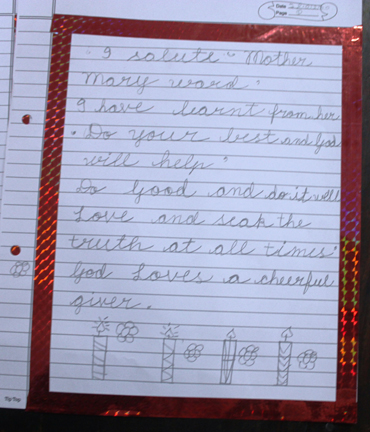 Date
Page
"I salute" Mother
Mary ward"
I have learnt from her
"Do your best and God
will help"
Do Good and do it well
Love and seak the
truth at all times"
God Loves a cheerful
giver.
Tip Top